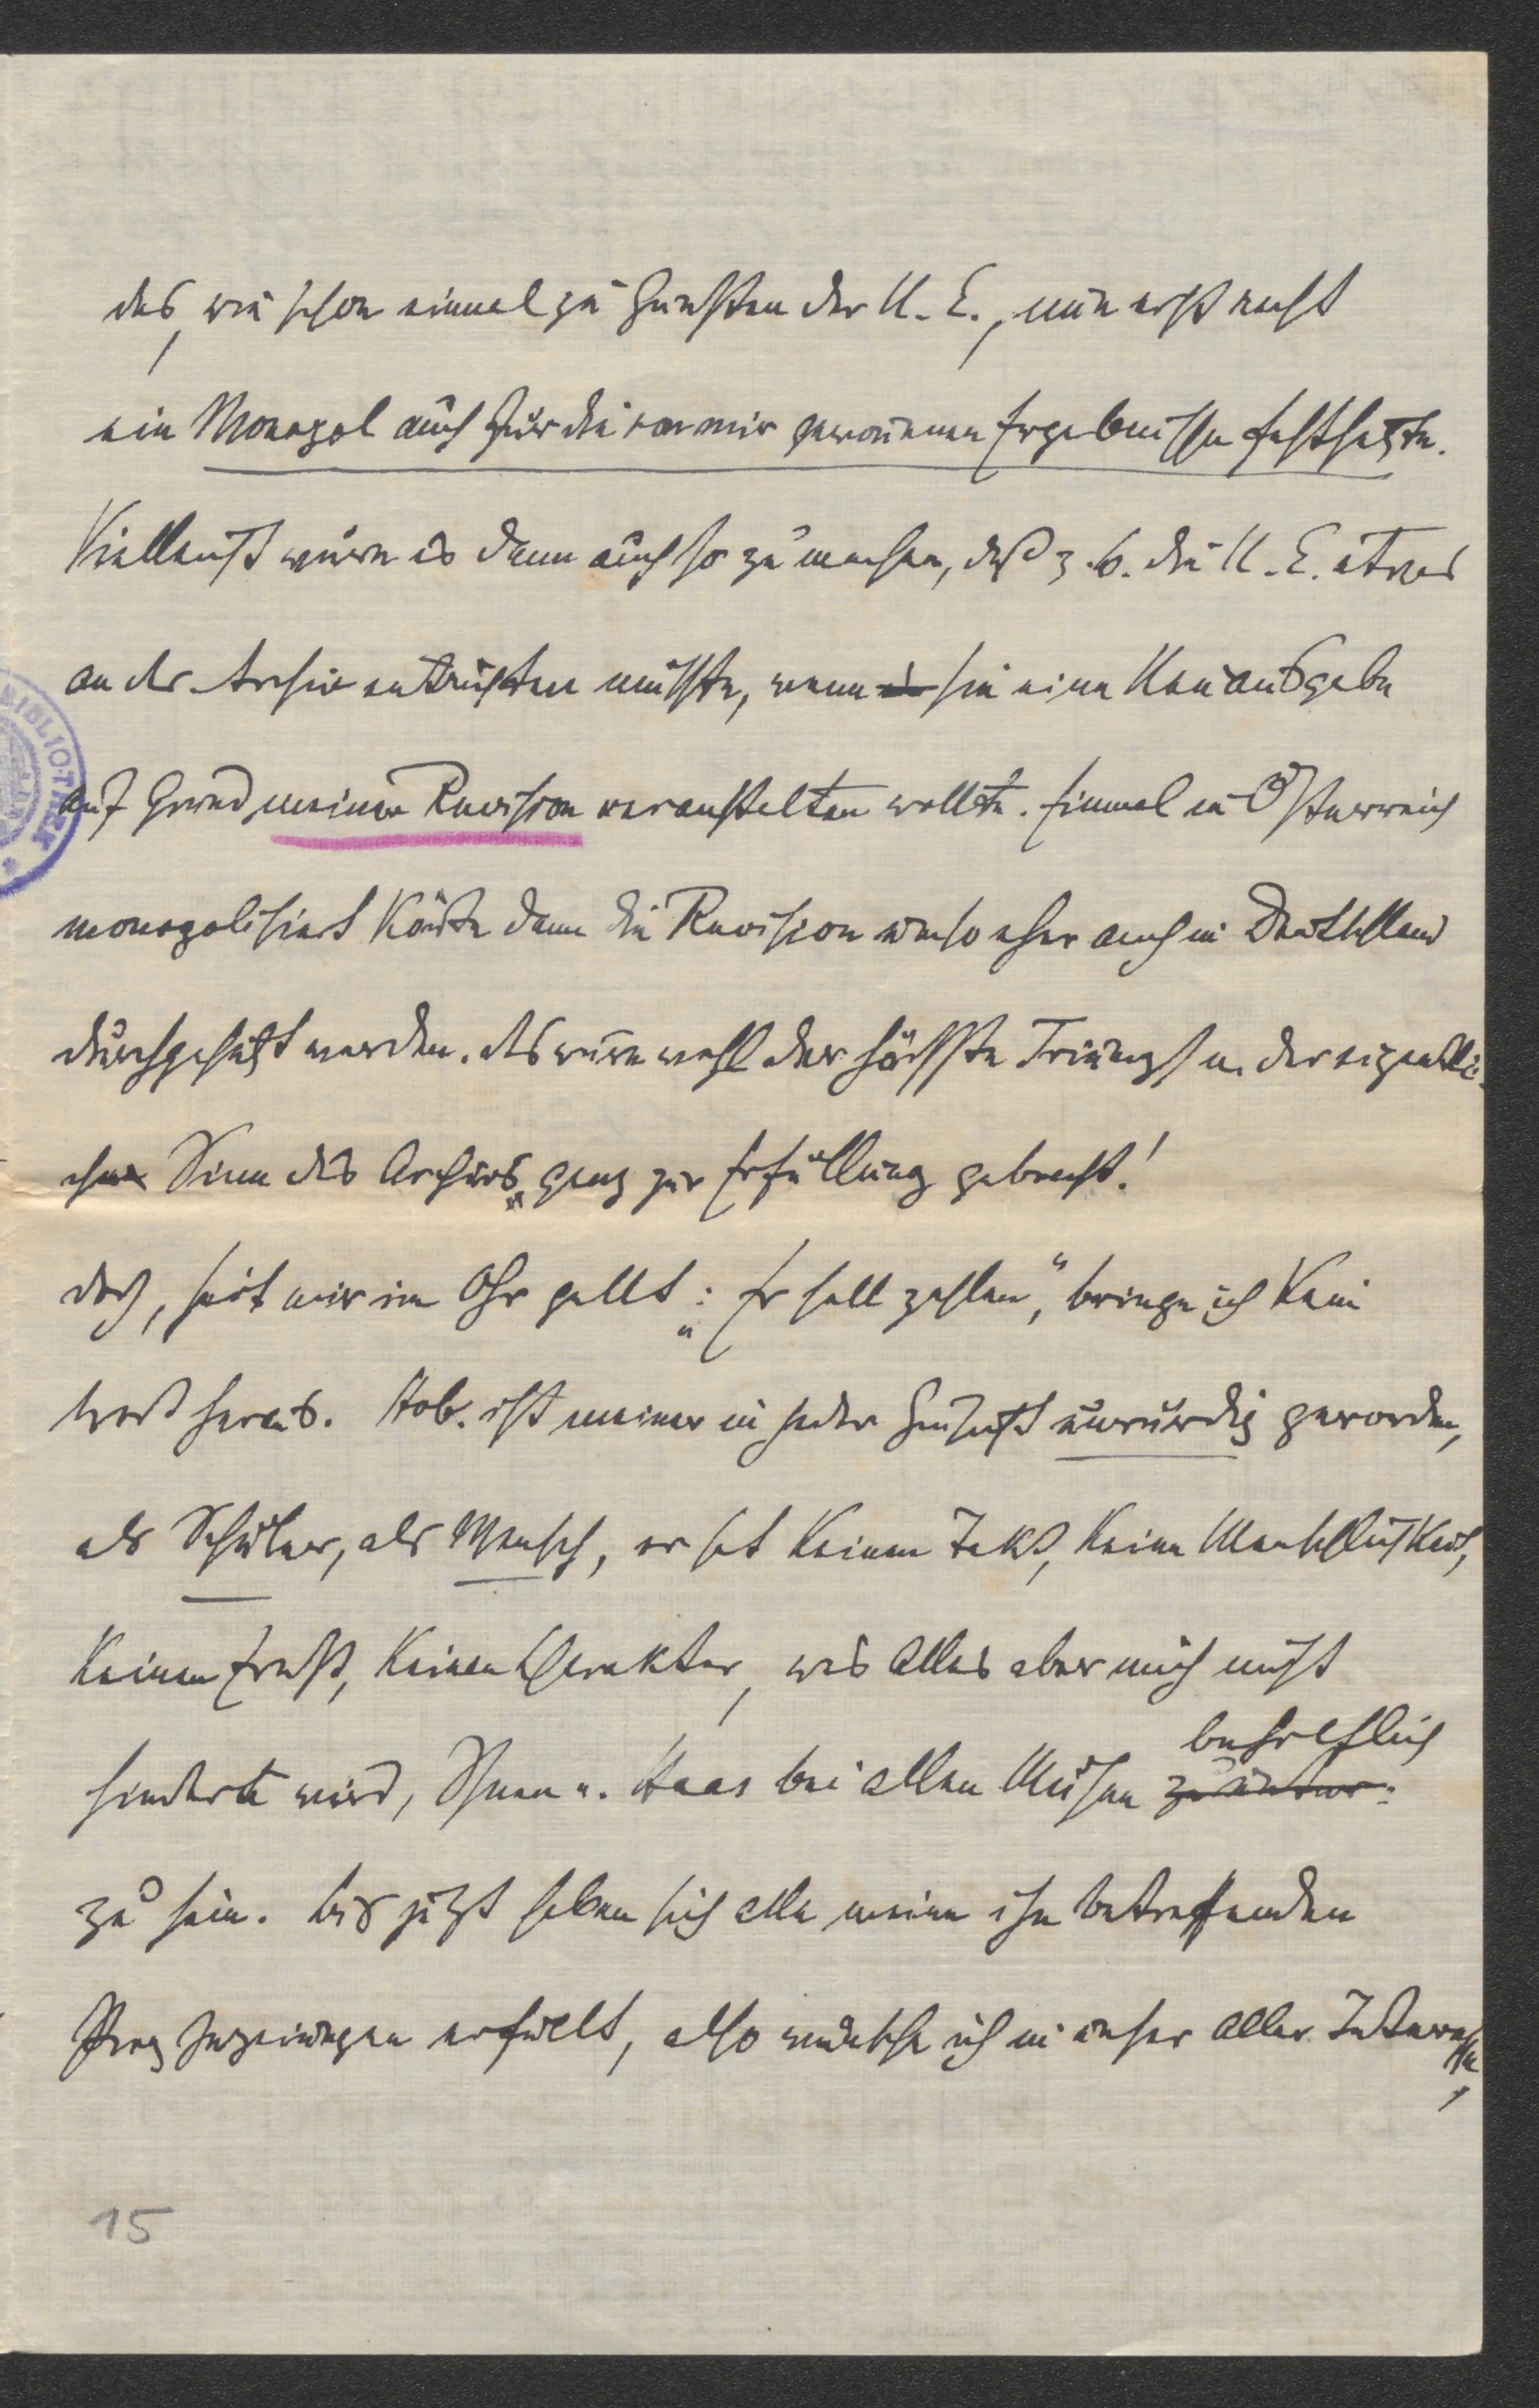 das, wie schon einmal zu Gunsten der U.E., nun erst recht
ein Monopol auch für die von mir gewonnenen Ergebnisse festsetzte.
Vielleicht wäre es dann auch so zu machen, daß z.B. die U.E. etwas
an das Archiv entrichten müßte, wenn sie eine Neuausgabe
auf Grund meiner Revision veranstalten wollte. Einmal in Österreich
monopolisiert könnte dann die Revision umso eher auch in Deutschland
durchgesetzt werden. Das wäre wohl der höchste Triumph u. der eigentli-
che Sinn des Archivs ganz zur Erfüllung gebracht!
Doch, seit mir im Ohr gellt: „Er soll zahlen“, bringe ich kein
Wort heraus. Hob. ist meiner in jeder Hinsicht unwürdig geworden,
als Schüler, als Mensch, er hat keinen Takt, keine Menschlichkeit,
keinen Ernst, keinen Charakter, was alles aber mich nicht
hindern wird, Ihnen u. Haas bei allen Mühen behilflich
zu sein. Bis jetzt haben sich alle meine ihn betreffenden
Prophezeiungen erfüllt, also möchte ich in unser aller Interesse,
15
BIBLIOTHEK